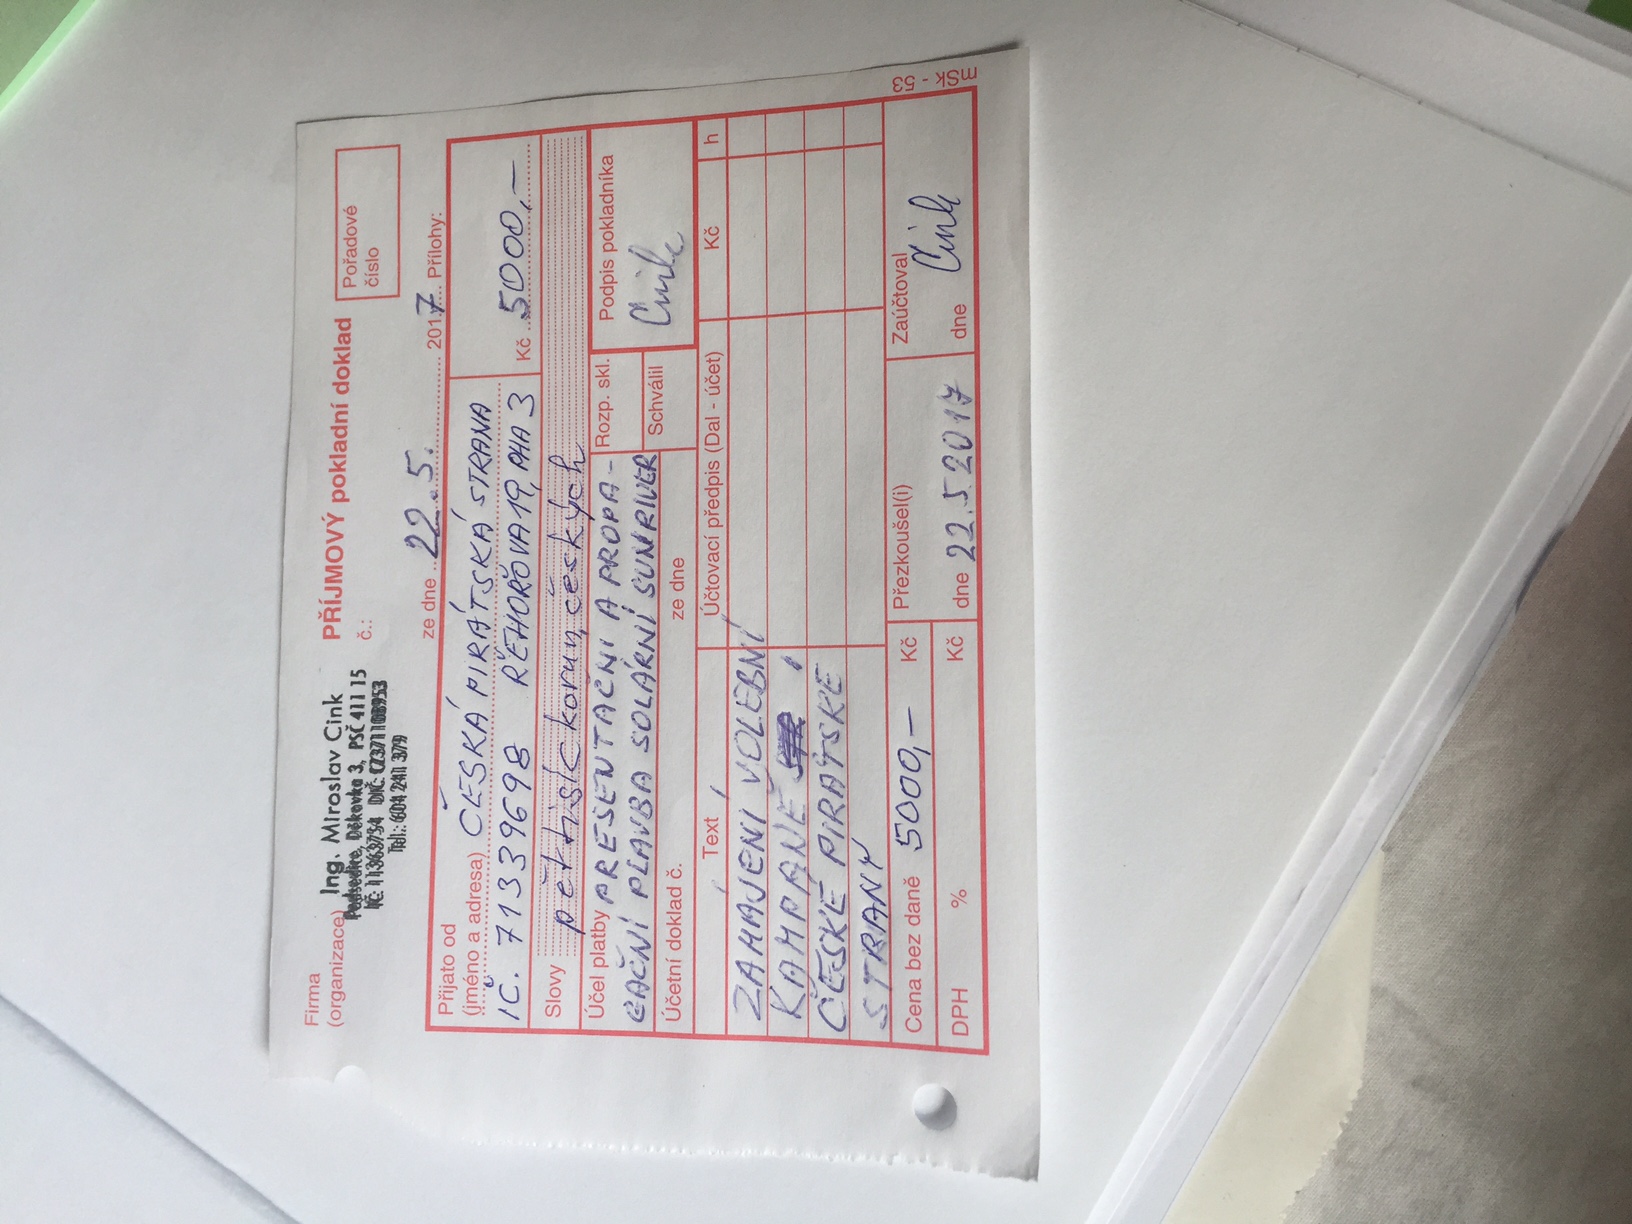 Firma
(organizace)
Ing. Miroslav Cink
Podsedice, Děkovka 3, PSČ 411 15
IČ: 11363754 DIČ: CZ371108953
Tel.: 604 241 379
PŘÍJMOVÝ pokladní doklad
č.:
Pořadové
číslo
ze dne 22.5. 2017 Přílohy:
Přijato od
(jméno a adresa) ČESKÁ PIRÁTSKÁ STRANA
IČ. 71339698 ŘEHOŘOVA 19, PHA 3
Kč 5000,-
Slovy pěttisíc korun českých
Účel platby PRESENTAČNÍ A PROPA-
GAČNÍ PLAVBA SOLÁRNÍ SUNRIVER
Rozp. skl.
Schválil
Podpis pokladníka
Cink
Účetní doklad č. ze dne
Text Účtovací předpis (Dal - účet) Kč h
ZAHÁJENÍ VOLEBNÍ
KAMPANĚ
ČESKÉ PIRÁTSKÉ
STRANY
Cena bez daně 5000,- Kč
DPH % Kč
Přezkoušel(i)
dne 22.5.2017
Zaúčtoval
dne Cink
mSk - 53